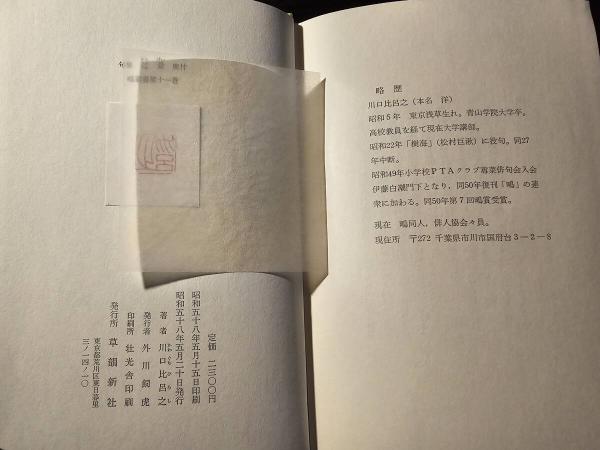 略 歴
川口比呂之(本名 洋)
昭和5年 東京浅草生れ。青山学院大学卒。
高校教員を経て現在大学講師。
昭和22年「樹海」(松村巨湫)に投句。同27
年中断。
昭和49年小学校PTAクラブ専菜俳句会入会
伊藤白潮門下となり、同50年復刊「鴫」の連
衆に加わる。同50年第7回鴫賞受賞。
現在 鴫同人、俳人協会々員。
現住所 〒272 千葉県市川市国府台3-2-8
定価 二三〇〇円
昭和五十八年五月十五日印刷
昭和五十八年五月二十日発行
著者 川口比呂之
発行者 外川飼虎
印刷所 壮光舎印刷
発行所 草韻新社
東京都荒川区東日暮里
三ノ一四ノ一〇